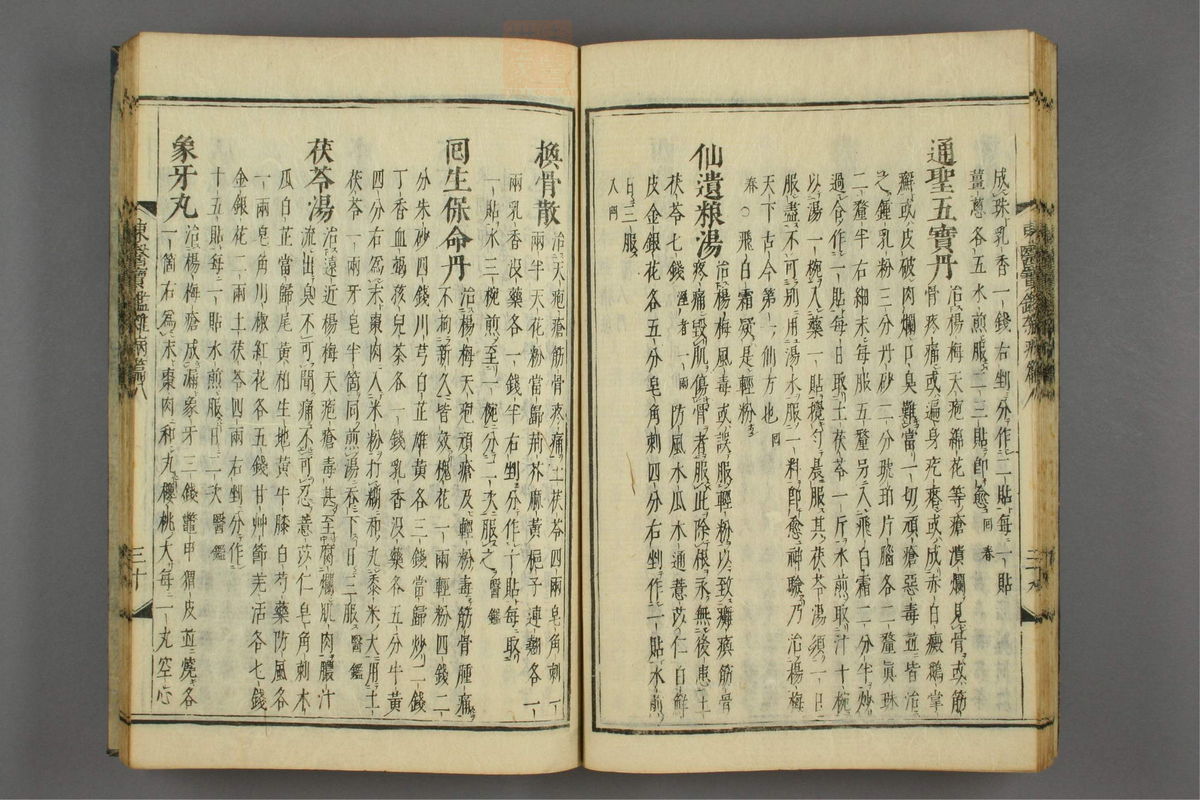 成珠乳香一錢右剉分作二貼每一貼
薑葱各五水煎服二三貼卽愈回春
通聖五寶丹治楊梅天疱綿花等瘡潰爛見骨或筋
骨疼痛或遍身疙瘩或成赤白癜鵝掌
癬或皮破肉爛口臭難當一切頑瘡惡毒並皆治
之鍾乳粉三分丹砂二分琥珀片腦各二釐眞珠
二釐半右細末每服五釐另入飛白霜二分半炒
過合作一貼每日取土茯苓一斤水煎取汁十椀
以湯一椀入藥一貼攪勻晨服其茯苓湯須一日
服盡不可別用湯水服一料卽愈神驗乃治楊梅
天下古今第一仙方也回
春○飛白霜疑是輕粉
仙遺粮湯治楊梅風毒或誤服輕粉以致癱瘓筋骨
疼痛毀肌傷骨者服此除根永無後患土
茯苓七錢濕者一兩防風木瓜木通薏苡仁白鮮
皮金銀花各五分皂角刺四分右剉作一貼水煎
日三服
入門
換骨散治天疱瘡筋骨疼痛土茯苓四兩皂角刺一
兩半天花粉當歸荊芥麻黃梔子連翹各一
兩乳香沒藥各一錢半右剉分作十貼每取
一貼水三椀煎至一椀分二次服之醫鑑
回生保命丹治楊梅天疱頑瘡及輕粉毒筋骨腫痛
不拘新久皆效槐花一兩輕粉四錢二
分朱砂四錢川芎白芷雄黃各三錢當歸炒二錢
丁香血竭孩兒茶各一錢乳香沒藥各五分牛黃
四分右爲末棗肉入米粉打糊和丸黍米大用土
茯苓一兩牙皂半箇同煎湯吞下日三服醫鑑
茯苓湯治遠近楊梅天疱瘡毒甚至腐爛肌肉膿汁
流出臭不可聞痛不可忍薏苡仁皂角刺木
瓜白芷當歸尾黃和生地黃牛膝白芍藥防風各
一兩皂角川椒紅花各五錢甘艸節羌活各七錢
金銀花二兩土茯苓四兩右剉分作
十五貼每一貼水煎服日二次醫鑑
象牙丸治楊梅瘡成漏象牙三錢鱉甲猬皮並燒各
一箇右爲末棗肉和丸櫻桃大每一丸空心
東醫寶鑑雜病篇八
三十